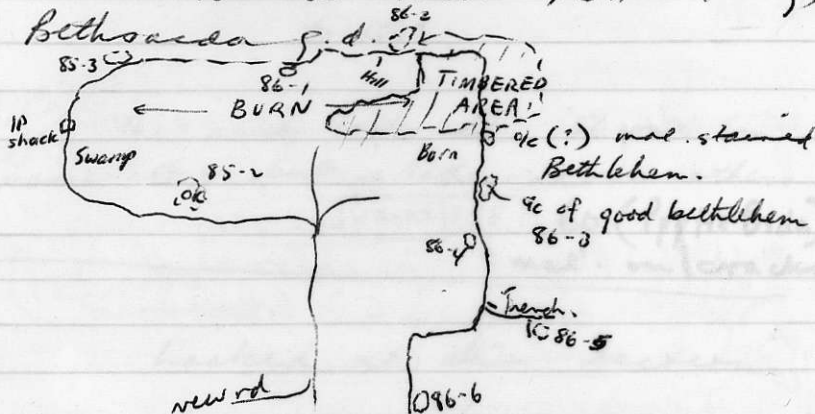 86-2
Bethsaeda g.d.
85-3
86-1
Hill
TIMBERED
AREA
BURN
IP
shack
Swamp
Burn
o/c (?) mal. stained
Bethlehem.
85-2
o/c of good bethlehem
86-3
86-4
Trench.
86-5
new rd
86-6